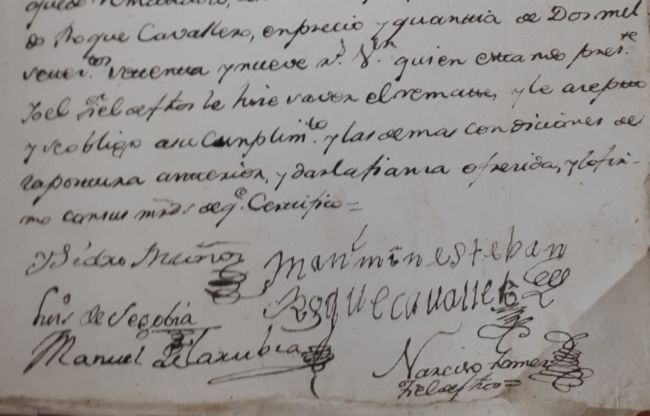 do Roque Cavallero, en precio y quantia de Dos mil
y nueve r.^s V.^n quien estando pres.^te
Yo el Fiel de fhos le hise saver el remate, y le acepto
y se obligo a su Cumplim.^to y las demas condiciones de
la postura anterior, y dar la fianza ofrecida, y lo fir-
mo con sus mrds de q.^e Certifico =
Ysidro Muñoz
Man.^l min esteban
Roque cavallero
Luis de Segobia
Manuel de Larubia
Narciso Romero
Fiel de fhos =